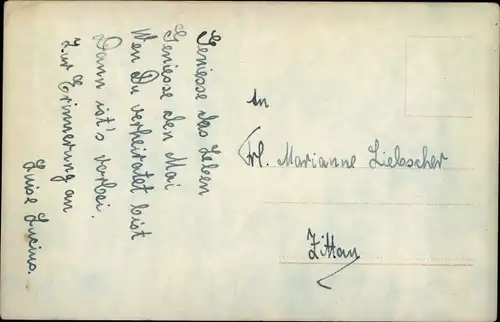 Geniesse das Leben
Geniesse den Mai
Wen Du verheiratet bist
Dann ist's vorbei.
Zur Erinnerung an
Luise
An
Frl. Marianne Liebscher
Zittau